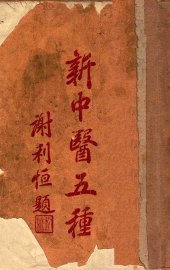 新中醫五種
謝利恒題